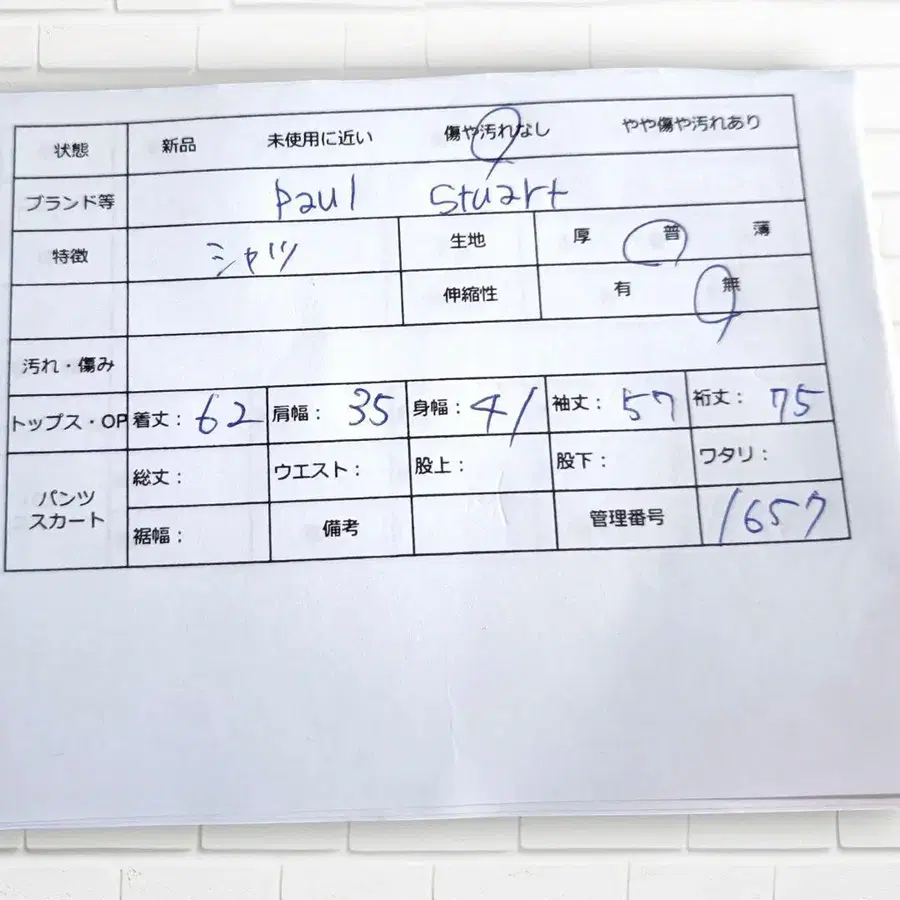 状態 新品 未使用に近い 傷や汚れなし やや傷や汚れあり
ブランド等 Paul Stuart
特徴 シャツ 生地 厚 普 薄
伸縮性 有 無
汚れ・傷み
トップス・OP 着丈： 62 肩幅： 35 身幅： 41 袖丈： 57 裄丈： 75
パンツ
スカート
総丈： ウエスト： 股上： 股下： ワタリ：
裾幅： 備考 管理番号 1657